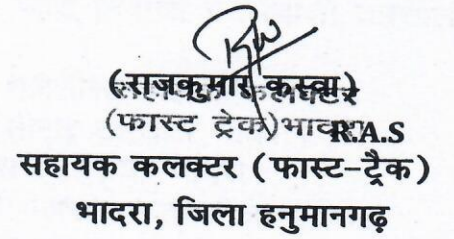 (राजकुमार कस्वा)
(फास्ट ट्रेक)भादरा R.A.S
सहायक कलक्टर (फास्ट-ट्रैक)
भादरा, जिला हनुमानगढ़